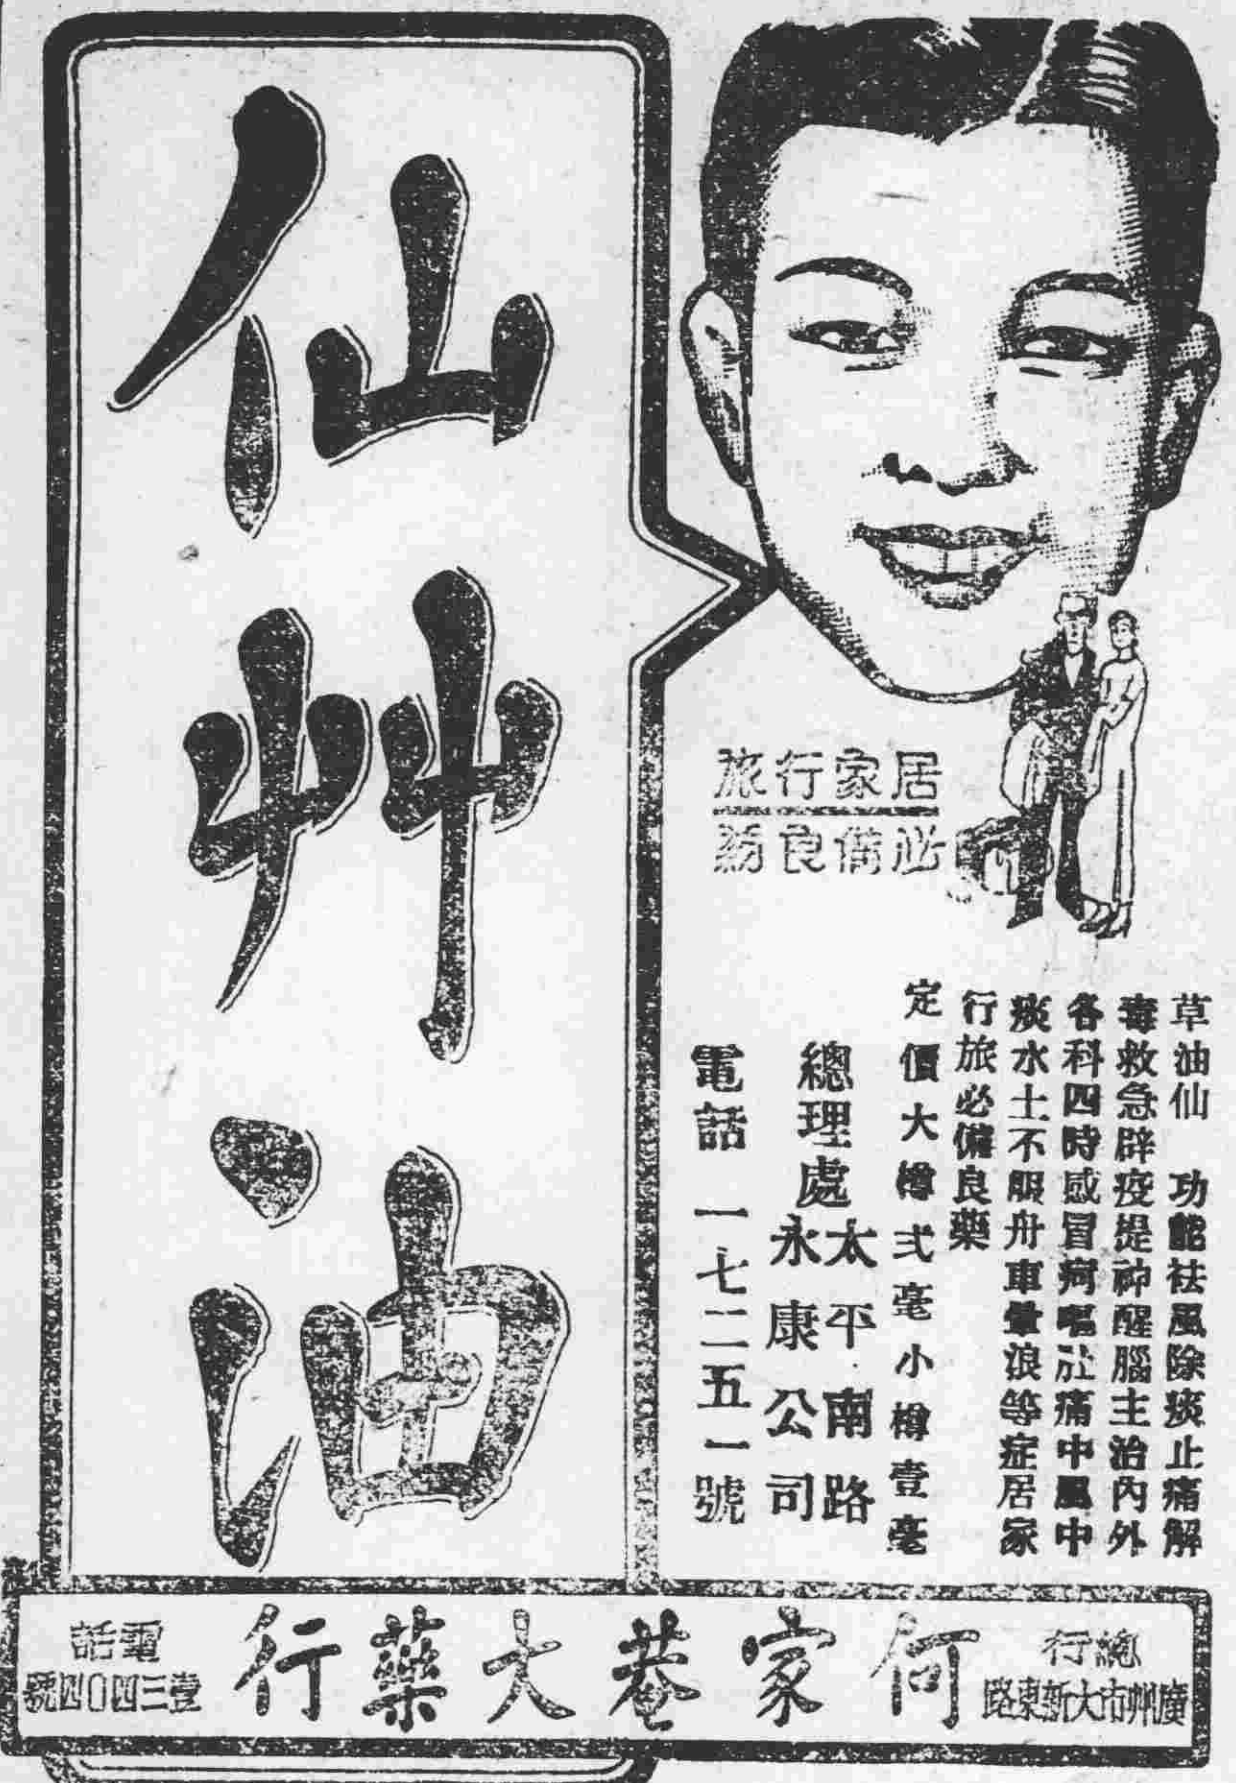 仙艸油
居家行旅
必備良葯
草油仙　功能祛風除痰止痛解
毒救急辟疫提神醒腦主治內外
各科四時感冒痾嘔肚痛中風中
痰水土不服舟車暈浪等症居家
行旅必備良藥
定價大樽弍毫小樽壹毫
總理處
太平南路
永康公司
電話　一七二五一號
總行
廣州市大新東路
何家巷大藥行
電話
壹三四〇四號